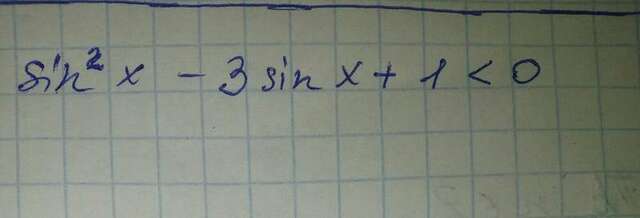 sin² x - 3 sin x + 1 < 0